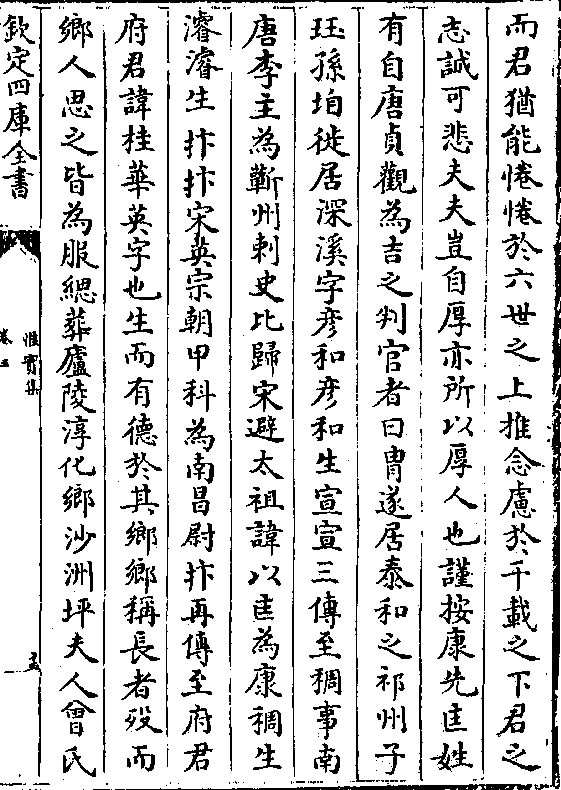 而君猶能惓惓於六世之上推念慮於千載之下君之
志誠可悲夫夫豈自厚亦所以厚人也謹按康先匡姓
有自唐貞觀為吉之判官者曰胄遂居泰和之祁州子
珏孫垍徙居深溪字彦和彦和生宣宣三傳至稠事南
唐李主為蘄州刺史比歸宋避太祖諱以匡為康稠生
濬濬生抃抃宋英宗朝甲科為南昌尉抃再傳至府君
府君諱桂華英字也生而有德於其鄉鄉稱長者歿而
鄉人思之皆為服緦葬廬陵淳化鄉沙洲坪夫人曾氏
欽定四庫全書
惟實集
卷三